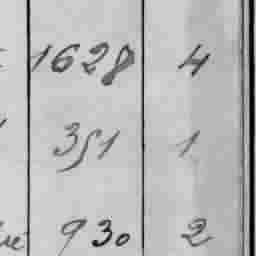 1628 4
351 1
930 2